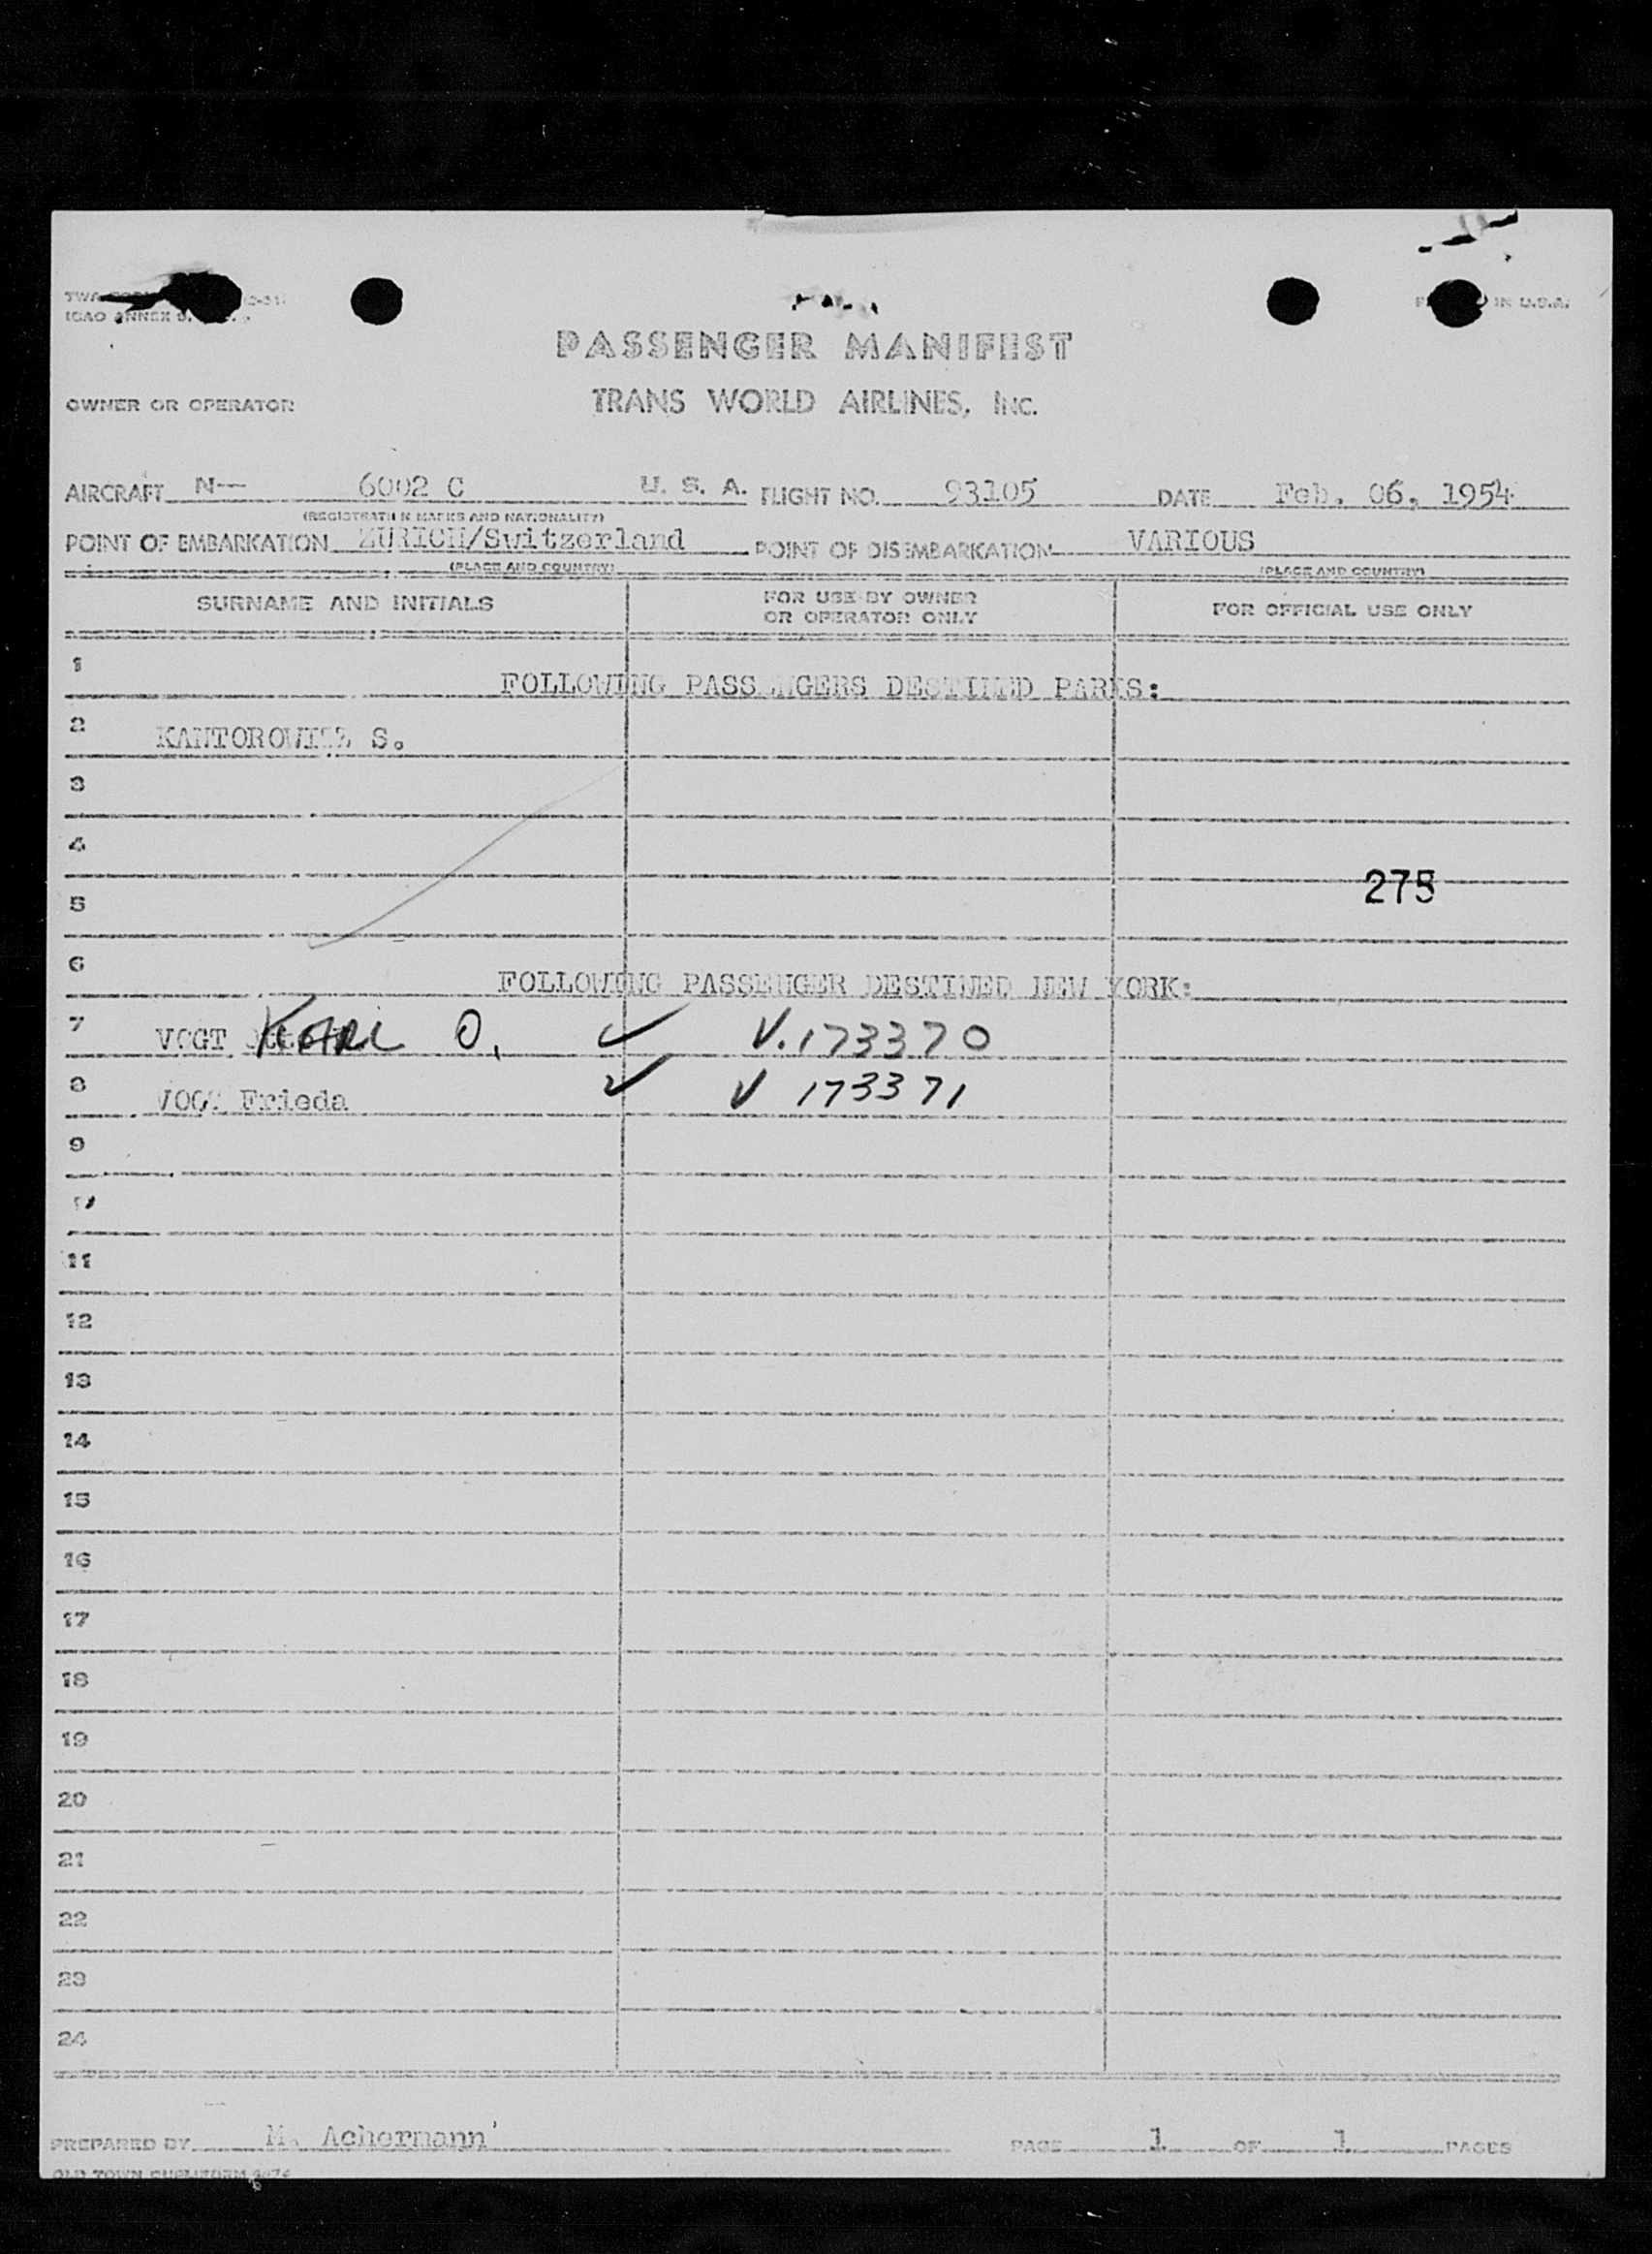 TWA
ICAO ANNEX 9.
IN U.S.A.
PASSENGER MANIFEST
OWNER OR OPERATOR TRANS WORLD AIRLINES, INC.
AIRCRAFT N— 6002 C U. S. A. FLIGHT NO. 93105 DATE Feb. 06, 1954
(REGISTRATION MARKS AND NATIONALITY)
POINT OF EMBARKATION ZURICH/Switzerland POINT OF DISEMBARKATION VARIOUS
(PLACE AND COUNTRY) (PLACE AND COUNTRY)
SURNAME AND INITIALS FOR USE BY OWNER OR OPERATOR ONLY FOR OFFICIAL USE ONLY
1 FOLLOWING PASSENGERS DESTINED PARIS:
2 KANTOROWITZ S.
3
4
275
5
6 FOLLOWING PASSENGER DESTINED NEW YORK:
7 VOGT KARL O. ✓ V.173370
8 VOGT Frieda ✓ V 173371
9
10
11
12
13
14
15
16
17
18
19
20
21
22
23
24
PREPARED BY M. Achermann PAGE 1 OF 1 PAGES
OLD TOWN